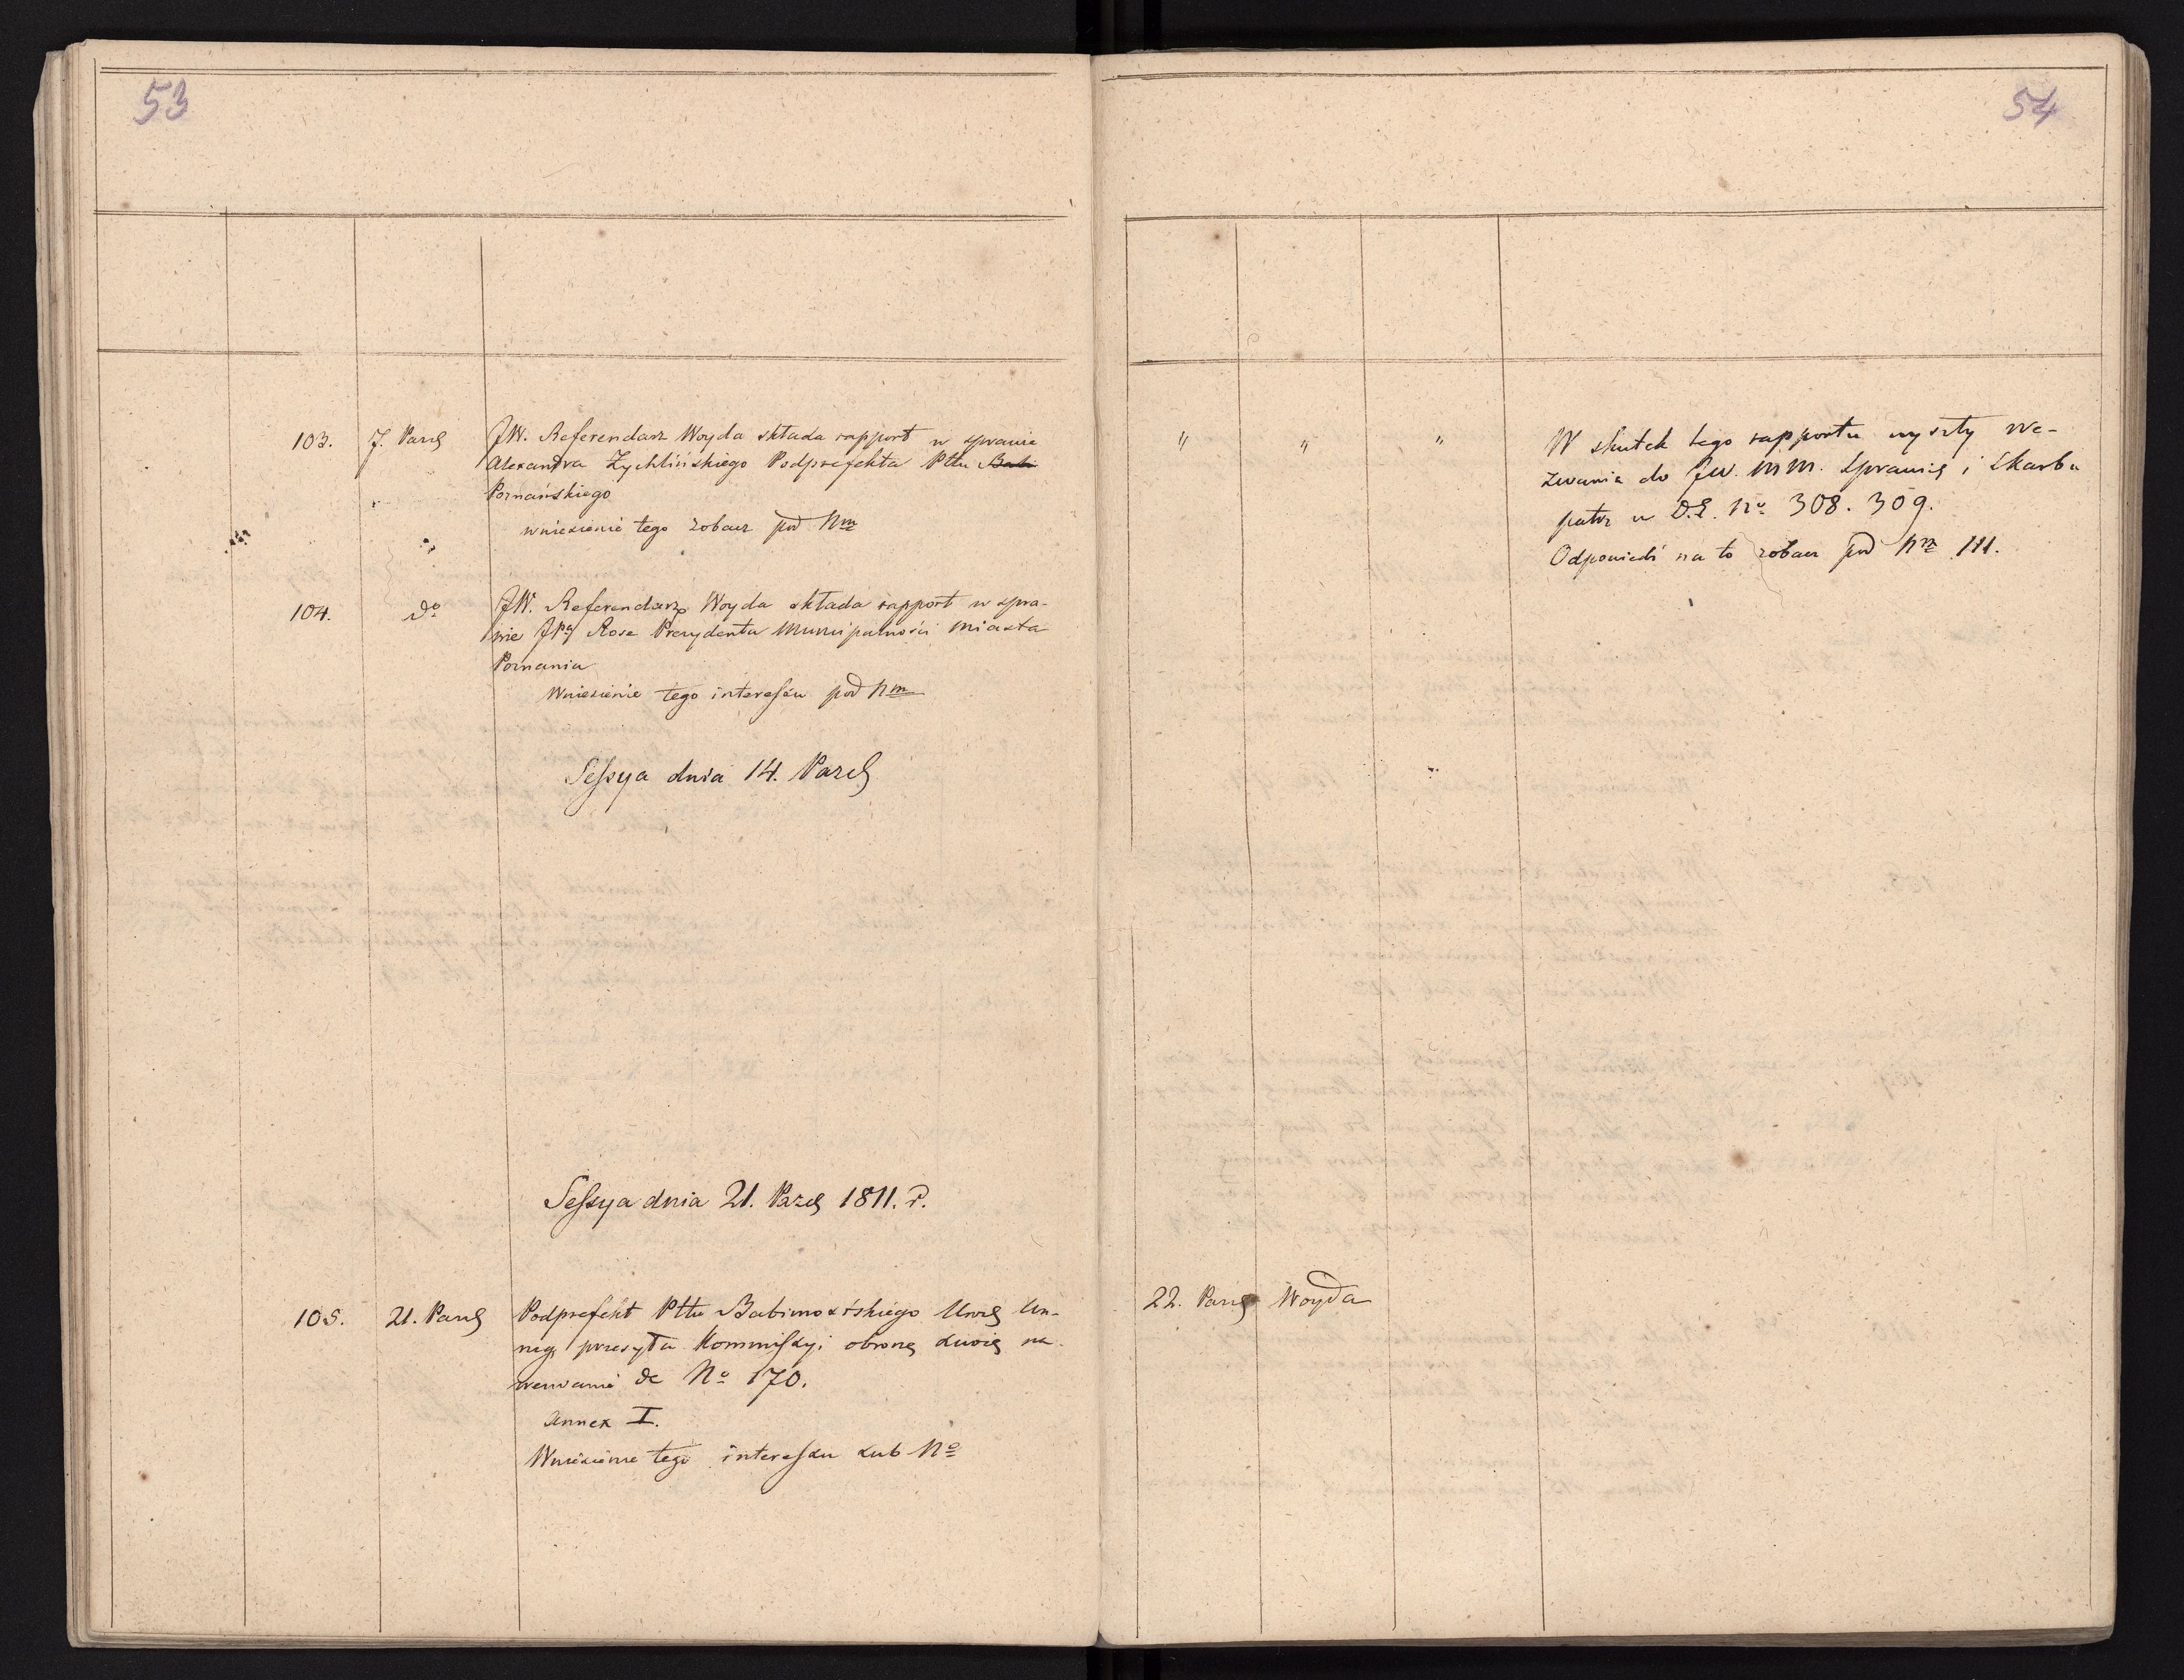 53
103. 7. Paźd JW. Referendarz Woyda składa rapport w sprawie
Alexandra Zychlińskiego Podprefekta Pttu Babi
Poznańskiego
wniesienie tego zobacz pod Nm
104. do JW. Referendarz Woyda składa rapport w spra-
wie JPa Rose Prezydenta Municipalności Miasta
Poznania
Wniesienie tego interessu pod Nm
Sessya dnia 14. Pazd
Sessya dnia 21. Pazd 1811. r.
105. 21. Pazd Podprefekt Pttu Babimostskiego Un-
rug przesyła Kommissyi obronę swoię na
wezwanie de No 170.
Annex I.
Wniesienie tego interessu sub No
54
" " " W skutek tego rapportu wyszły we-
zwania do JW. MM. Sprawie i Skarbu
patrz w D.E. No 308. 309.
Odpowiedź na to zobacz pod Nrm 111.
22. Pazd Woyda